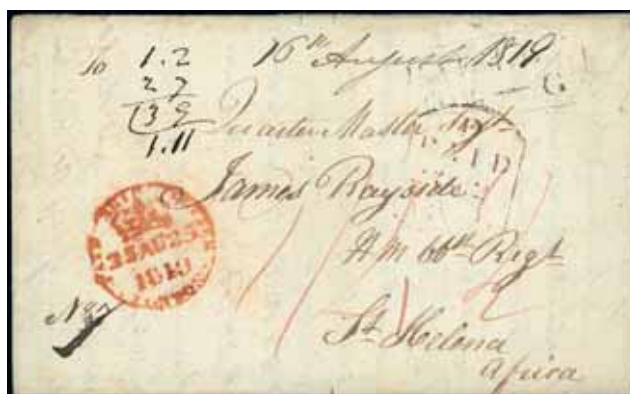 To
1.2
2 7
(3 9
1.11
16th August 1819
6
Quarter Master Sagt
PAID
James Rayside
H M 66th Regt
St Helena
Africa
PAID
23AU23
1819
No 7